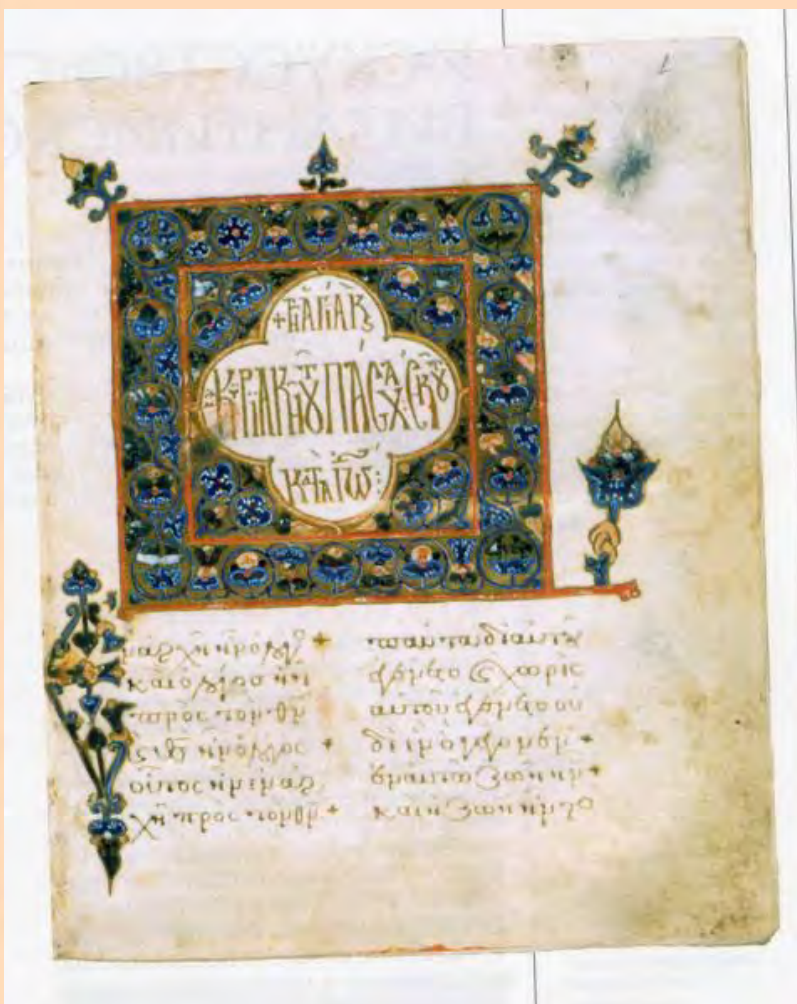 1
+ Τῆ ἁγία κ
κυριακῆ τοῦ πάσχα ἐκ τοῦ
κατὰ ἰω:
ν ἀρχῆ ἦν ὁ λόγο +
καὶ ὁ λόγος ἦν
πρὸς τὸν θν
κ θς ἦν ὁ λόγος +
οὗτος ἦν ἐν ἀρ
χῆ πρὸς τὸν θν +
πάντα δι αὐτοῦ
ἐγένετο κ χωρὶς
αὐτοῦ ἐγένετο οὐ
δὲ ἓν ὃ γέγονεν +
ἐν αὐτῶ ζωὴ ἦν +
καὶ ἡ ζωὴ ἦν τὸ